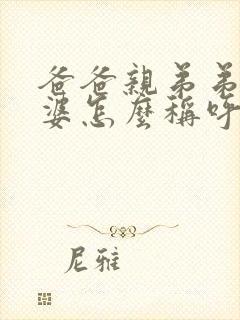 爸爸親弟弟
婆怎麼稱呼
尼雅